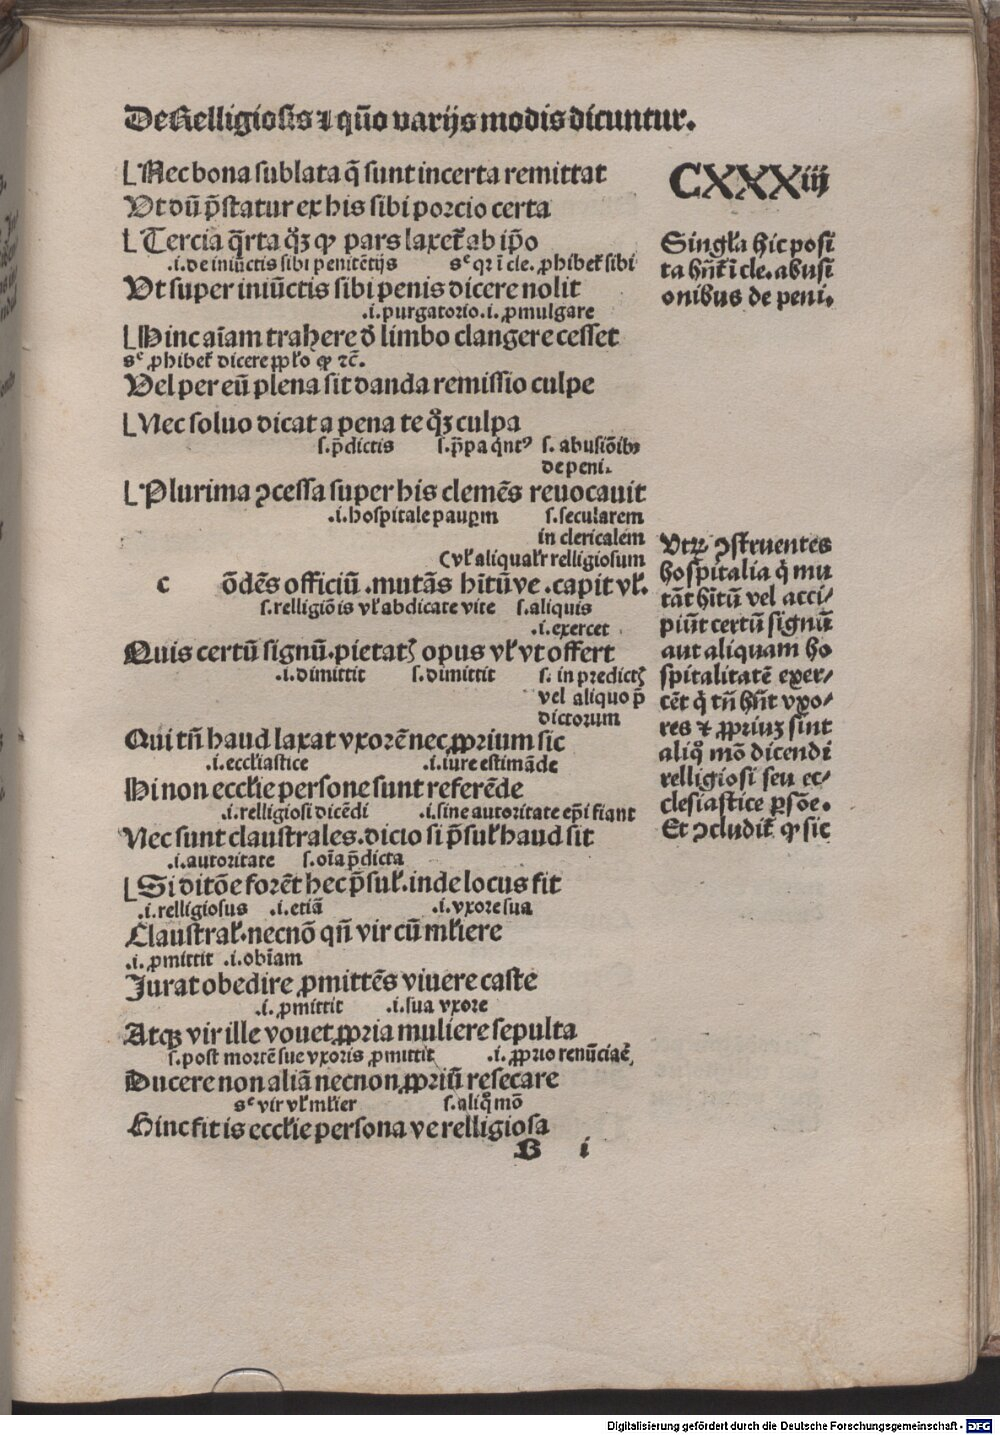 De Relligiosis ⁊ quo͞ varijs modis dicuntur.
CXXXiij
Nec bona sublata q̄ sunt incerta remittat
Vt dū p̄statur ex his sibi porcio certa
Tercia q̄rta qꝫ ꝙ pars laxet᷑ ab ip̄o
.i. de iniūctis sibi penitētijs sᶜ qꝛ ī cle. ꝓhibet᷑ sibi
Vt super iniūctis sibi penis dicere nolit
.i. purgatorio .i. ꝓmulgare
Hinc aīam trahere ꝺ limbo clangere cesset
sᶜ ꝓhibet᷑ dicere pp̄lo ꝙ ⁊c̄.
Vel per eū plena sit danda remissio culpe
Nec soluo dicat a pena te qꝫ culpa
s. p̄dictis s. p̄pa q̄ntꝰ s. abusiōibꝫ
de peni.
Plurima ꝯcessa super his clemēs reuocauit
.i. hospitale pauꝑm s. secularem
in clericalem
(vł aliqualr̄ relligiosum
c ōdēs officiū .mutās hītū ve .capit vł.
s. relligiōis vł abdicate vite s. aliquis
.i. exercet
Quis certū signū. pietatꝭ opus vł vt offert
.i. dimittit s. dimittit s. in predictꝭ
vel aliquo p̄
dictorum
Qui tn̄ haud laxat vxorē nec ꝓprium sic
.i. eccłiastice .i. iure estimāde
Hi non eccłie persone sunt referēde
.i. relligiosi dicēdi .i. sine autoritate ep̄i fiant
Nec sunt claustrales. dicio si p̄suł haud sit
.i. autoritate s. oīa p̄dicta
Si ditōe forēt hec p̄suł. inde locus fit
.i. relligiosus .i. etiā .i. vxore sua
Claustrał. necnō qn̄ vir cū młiere
.i. ꝓmittit .i. obīam
Jurat obedire ꝓmittēs viuere caste
.i. ꝓmittit .i. sua vxore
Atqꝫ vir ille vouet ꝓpria muliere sepulta
s. post mortē sue vxoris ꝓmittit .i. ꝓprio renūciaē
Ducere non aliā necnon ꝓpriū resecare
sᶜ vir vł młier s. aliq̊ mō
Hinc fit is eccłie persona ve relligiosa
B i
Singła hic posi
ta hn̄t᷑ ī cle. abusi
onibus de peni.
Vtꝝ ꝯstruentes
hospitalia q̇ mu
tāt hītū vel acci/
piūt certū signū
aut aliquam ho
spitalitatē exer/
cēt q̇ tn̄ hn̄t vxo/
res ⁊ ꝓpriuꝫ sint
aliq̊ mō dicendi
relligiosi seu ec/
clesiastice ꝑsōe.
Et ꝯcludit᷑ ꝙ sic
Digitalisierung gefördert durch die Deutsche Forschungsgemeinschaft - DFG